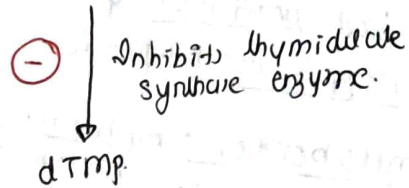 Inhibits thymidulate
synthase enzyme.
dTMP.